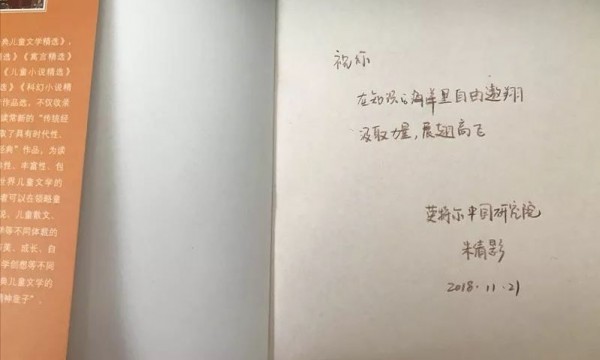 典儿童文学精选》，
选》《寓言精选》
《儿童小说精选》
选》《科幻小说精
作品选，不仅收录
读常新的“传统经
取了具有时代性、
经典”作品，为读
性、丰富性、包
世界儿童文学的
者可以在领略童
说、儿童散文、
等不同体裁的
美、成长、自
学创想等不同
典儿童文学的
精神亲子”。
祝你
在知识的海洋里自由遨翔
汲取力量，展翅高飞
英特尔中国研究院
朱倩影
2018.11.21